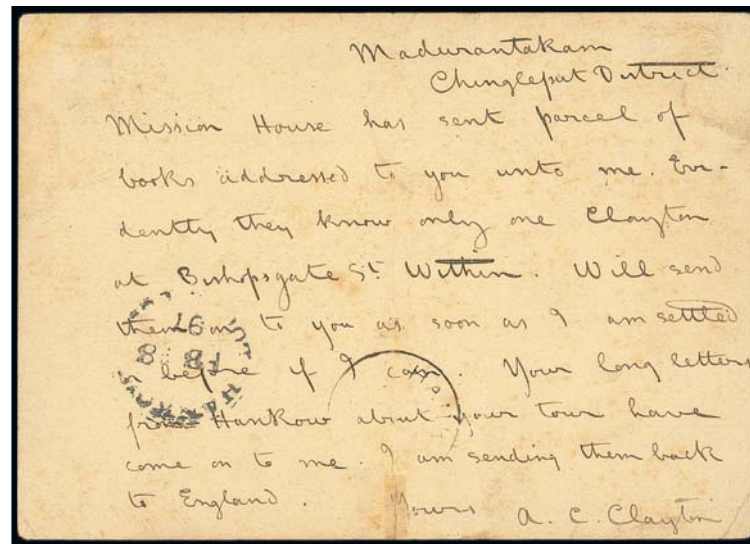 Madurantakam
Chinglepat District.
Mission House has sent parcel of
books addressed to you unto me. Evi-
dently they know only one Clayton
at Bishopsgate St. Within. Will send
them on to you as soon as I am settled
or before if I can. Your long letters
from Hankow about your tour have
come on to me. I am sending them back
to England. Yours A. C. Clayton
97
FB
8